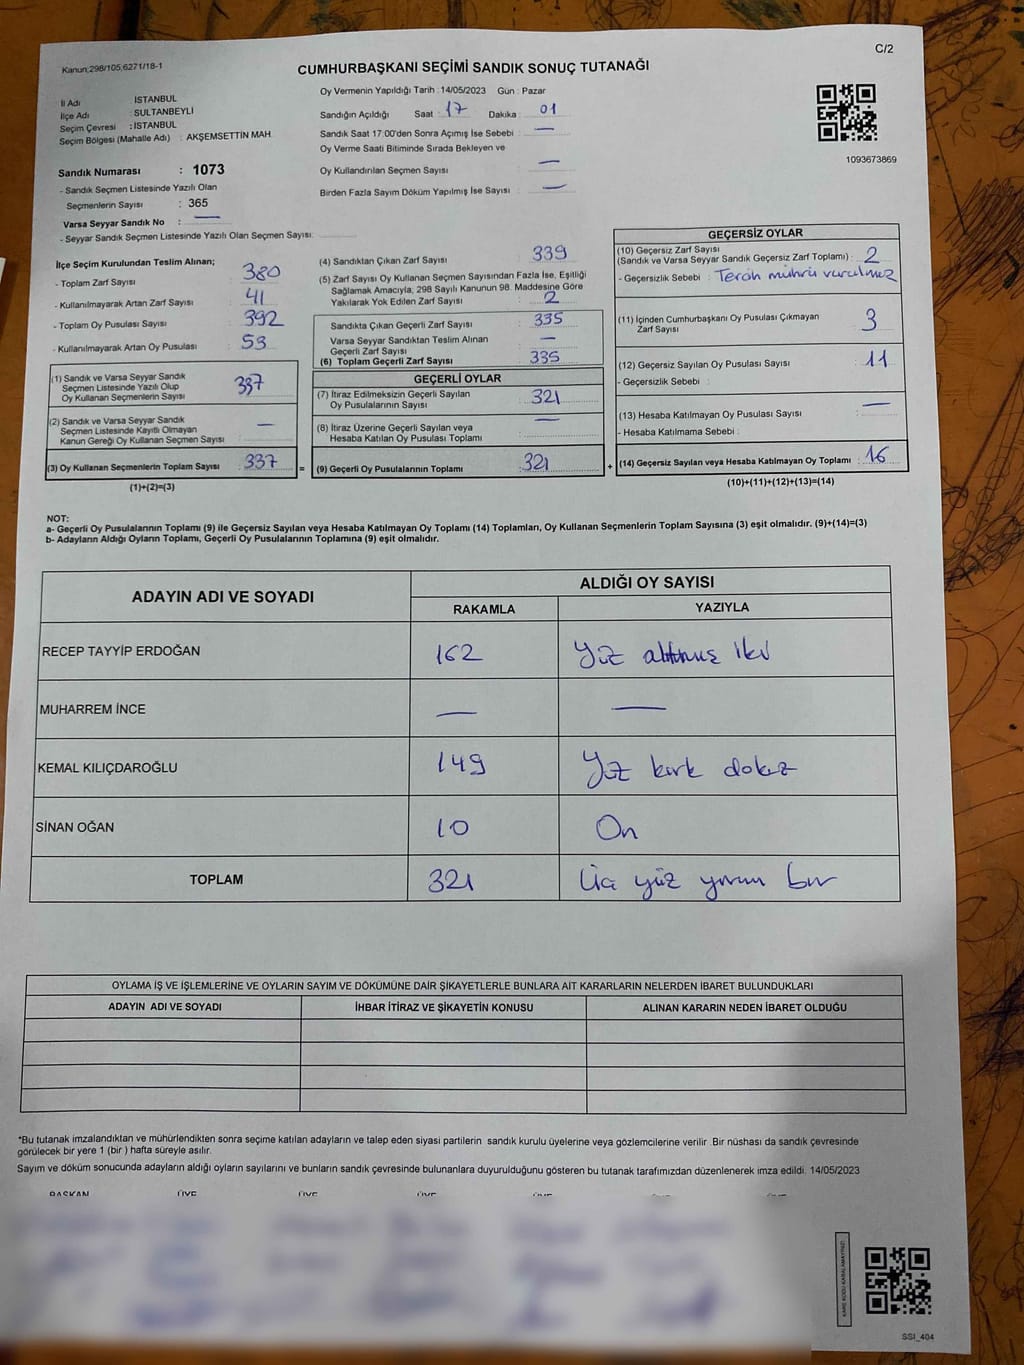 C/2
Kanun;298/105,6271/18-1
CUMHURBAŞKANI SEÇİMİ SANDIK SONUÇ TUTANAĞI
İl Adı : İSTANBUL
İlçe Adı : SULTANBEYLİ
Seçim Çevresi : İSTANBUL
Seçim Bölgesi (Mahalle Adı) : AKŞEMSETTİN MAH.
Sandık Numarası : 1073
- Sandık Seçmen Listesinde Yazılı Olan
Seçmenlerin Sayısı : 365
Varsa Seyyar Sandık No : —
- Seyyar Sandık Seçmen Listesinde Yazılı Olan Seçmen Sayısı:
Oy Vermenin Yapıldığı Tarih : 14/05/2023 Gün : Pazar
Sandığın Açıldığı Saat : 17 Dakika : 01
Sandık Saat 17:00'den Sonra Açımış İse Sebebi : —
Oy Verme Saati Bitiminde Sırada Bekleyen ve
Oy Kullandırılan Seçmen Sayısı : —
Birden Fazla Sayım Döküm Yapılmış İse Sayısı : —
1093673869
İlçe Seçim Kurulundan Teslim Alınan;
- Toplam Zarf Sayısı : 380
- Kullanılmayarak Artan Zarf Sayısı : 41
- Toplam Oy Pusulası Sayısı : 392
- Kullanılmayarak Artan Oy Pusulası : 53
(1) Sandık ve Varsa Seyyar Sandık
Seçmen Listesinde Yazılı Olup
Oy Kullanan Seçmenlerin Sayısı : 337
(2) Sandık ve Varsa Seyyar Sandık
Seçmen Listesinde Kayıtlı Olmayan
Kanun Gereği Oy Kullanan Seçmen Sayısı : —
(3) Oy Kullanan Seçmenlerin Toplam Sayısı : 337 =
(1)+(2)=(3)
(4) Sandıktan Çıkan Zarf Sayısı : 339
(5) Zarf Sayısı Oy Kullanan Seçmen Sayısından Fazla İse, Eşitliği
Sağlamak Amacıyla, 298 Sayılı Kanunun 98. Maddesine Göre
Yakılarak Yok Edilen Zarf Sayısı : 2
Sandıkta Çıkan Geçerli Zarf Sayısı : 335
Varsa Seyyar Sandıktan Teslim Alınan
Geçerli Zarf Sayısı : —
(6) Toplam Geçerli Zarf Sayısı : 335
GEÇERLİ OYLAR
(7) İtiraz Edilmeksizin Geçerli Sayılan
Oy Pusulalarının Sayısı : 321
(8) İtiraz Üzerine Geçerli Sayılan veya
Hesaba Katılan Oy Pusulası Toplamı : —
(9) Geçerli Oy Pusulalarının Toplamı : 321 +
GEÇERSİZ OYLAR
(10) Geçersiz Zarf Sayısı
(Sandık ve Varsa Seyyar Sandık Geçersiz Zarf Toplamı) : 2
- Geçersizlik Sebebi : Tercih mührü vurulmaz
(11) İçinden Cumhurbaşkanı Oy Pusulası Çıkmayan
Zarf Sayısı : 3
(12) Geçersiz Sayılan Oy Pusulası Sayısı : 11
- Geçersizlik Sebebi :
(13) Hesaba Katılmayan Oy Pusulası Sayısı : —
- Hesaba Katılmama Sebebi :
(14) Geçersiz Sayılan veya Hesaba Katılmayan Oy Toplamı : 16
(10)+(11)+(12)+(13)=(14)
NOT:
a- Geçerli Oy Pusulalarının Toplamı (9) ile Geçersiz Sayılan veya Hesaba Katılmayan Oy Toplamı (14) Toplamları, Oy Kullanan Seçmenlerin Toplam Sayısına (3) eşit olmalıdır. (9)+(14)=(3)
b- Adayların Aldığı Oyların Toplamı, Geçerli Oy Pusulalarının Toplamına (9) eşit olmalıdır.
ADAYIN ADI VE SOYADI ALDIĞI OY SAYISI
RAKAMLA YAZIYLA
RECEP TAYYİP ERDOĞAN 162 Yüz altmış iki
MUHARREM İNCE — —
KEMAL KILIÇDAROĞLU 149 Yüz kırk dokuz
SİNAN OĞAN 10 On
TOPLAM 321 Üç yüz yirmi bir
OYLAMA İŞ VE İŞLEMLERİNE VE OYLARIN SAYIM VE DÖKÜMÜNE DAİR ŞİKAYETLERLE BUNLARA AİT KARARLARIN NELERDEN İBARET BULUNDUKLARI
ADAYIN ADI VE SOYADI İHBAR İTİRAZ VE ŞİKAYETİN KONUSU ALINAN KARARIN NEDEN İBARET OLDUĞU
*Bu tutanak imzalandıktan ve mühürlendikten sonra seçime katılan adayların ve talep eden siyasi partilerin sandık kurulu üyelerine veya gözlemcilerine verilir .Bir nüshası da sandık çevresinde
görülecek bir yere 1 (bir ) hafta süreyle asılır.
Sayım ve döküm sonucunda adayların aldığı oyların sayılarını ve bunların sandık çevresinde bulunanlara duyurulduğunu gösteren bu tutanak tarafımızdan düzenlenerek imza edildi. 14/05/2023
BAŞKAN ÜYE ÜYE ÜYE ÜYE
KARE KODU KARALAMAYINIZ!
SSİ_404